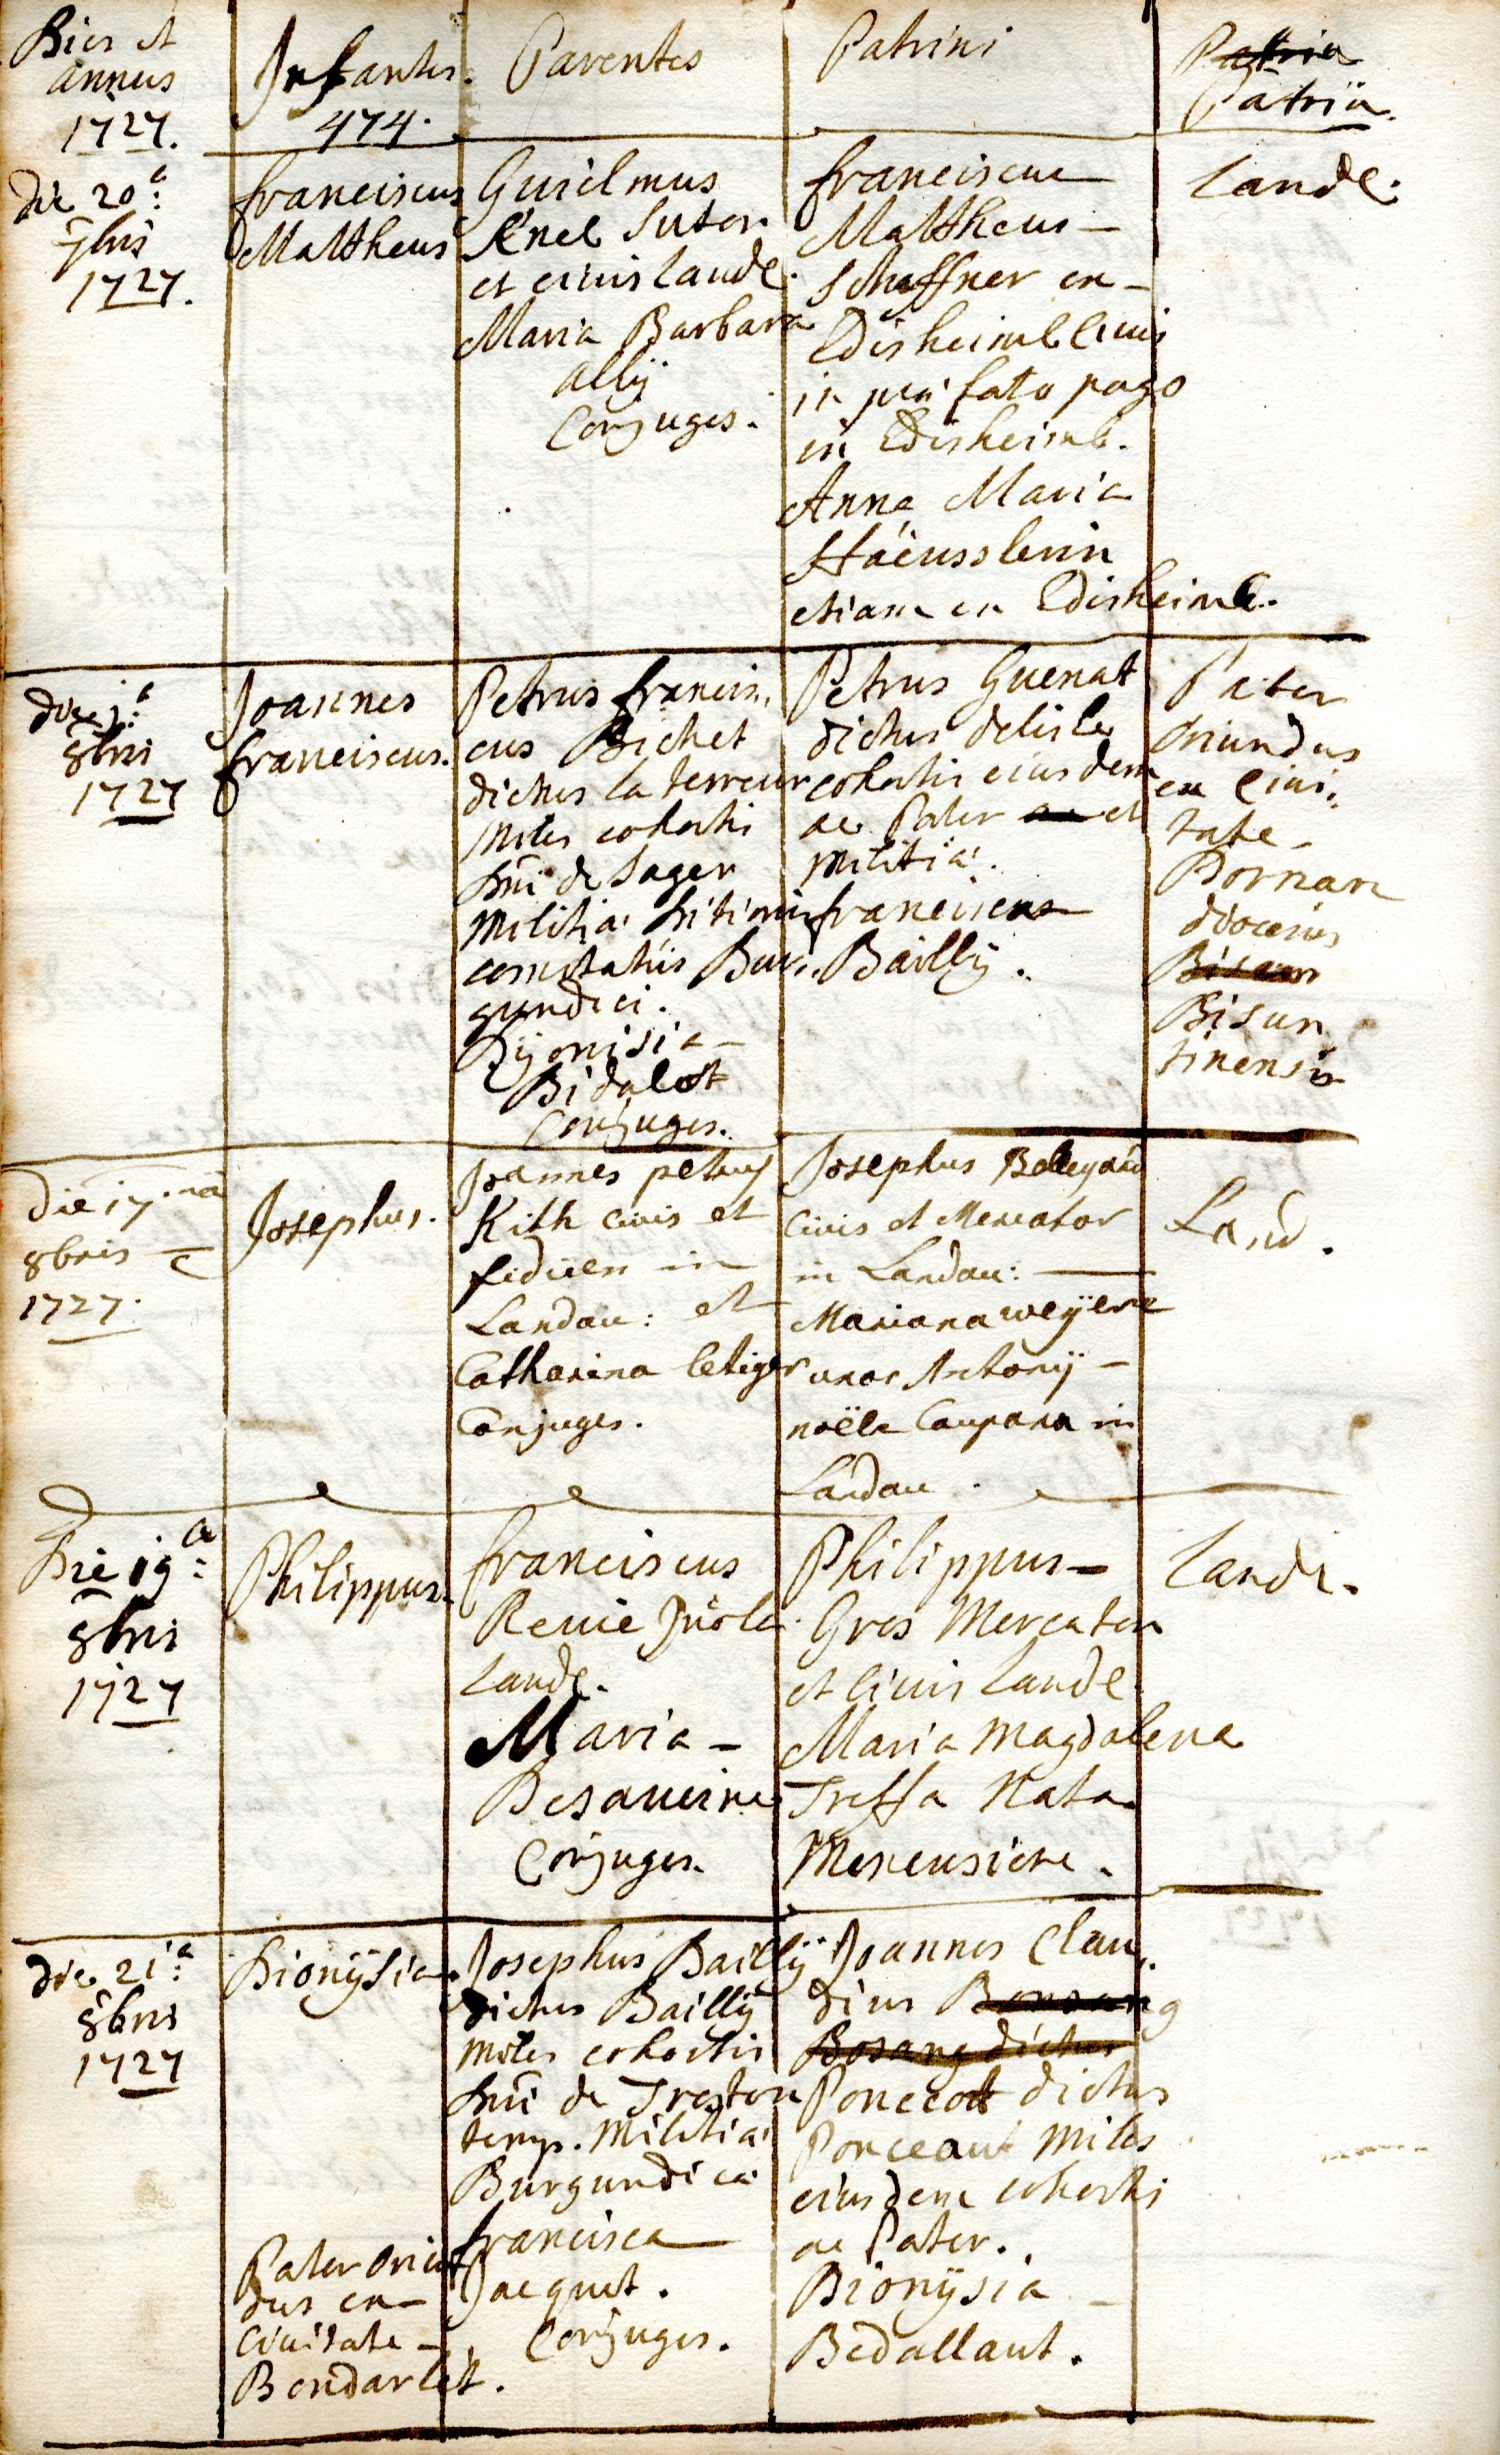 Dies et
annus
1727.
Infantes.
474.
Parentes
Patrini
Patria
Patria.
Die 20ª:
7bris
1727.
franciscus
Mattheus
Guielmus
Knel Sutor
et civis Lande.
Maria Barbara
Conjuges.
franciscus
Mattheus
Schaffner ex
Edisheimb civis
in præfato pago
in Edisheimb.
Anna Maria
Häeusslerin
etiam ex Edisheimb.
Lande.
8bris
1727
Joannes
franciscus.
Petrus francis,
cus Bichet
dictus la terreur
Miles cohortis
Dni de Sager
Militiæ
comitatus Bur,
gundici.
Dyonisia
Bidalot
Conjuges.
Petrus Guenat
dictus delisle
cohortis eiusdem
ac Pater ac et
Militiæ.
franciscus
Bailly.
Pater
oriundus
ex Civi,
tate
Dornan
diocesis
Bisun
tinensis
Die 17.ma
8bris
1727.
Josephus.
Joannes petrus
Kith civis et
in
Landau: et
Catharina letiger
Conjuges.
Josephus
Civis et Mercator
in Landau:
Mariana weyere
uxor Antonij
noëlle Caupana in
Landau.
Land.
Die 19ª:
8bris
1727
Philippus.
franciscus
Renie
Lande.
Maria
Besancine
Conjuges.
Philippus
Gros Mercator
et Civis Lande
Maria Magdalena
Treffa Nata
Lande.
die 21ª:
8bris
1727
Dionÿsia.
Pater oriun
dus ex
Civitate
Bondarlét.
Josephus Baillÿ
dictus Baillÿ
miles cohortis
Dni de Treston
temp. Militiæ
Burgundicæ
francisca
Jacquet.
Conjuges.
Joannes Clau,
dius Bonsang
Bosang dictus
Ponceot dictus
Ponceaut Miles
eiusdem cohortis
ac Pater.
Dionÿsia
Bedallaut.